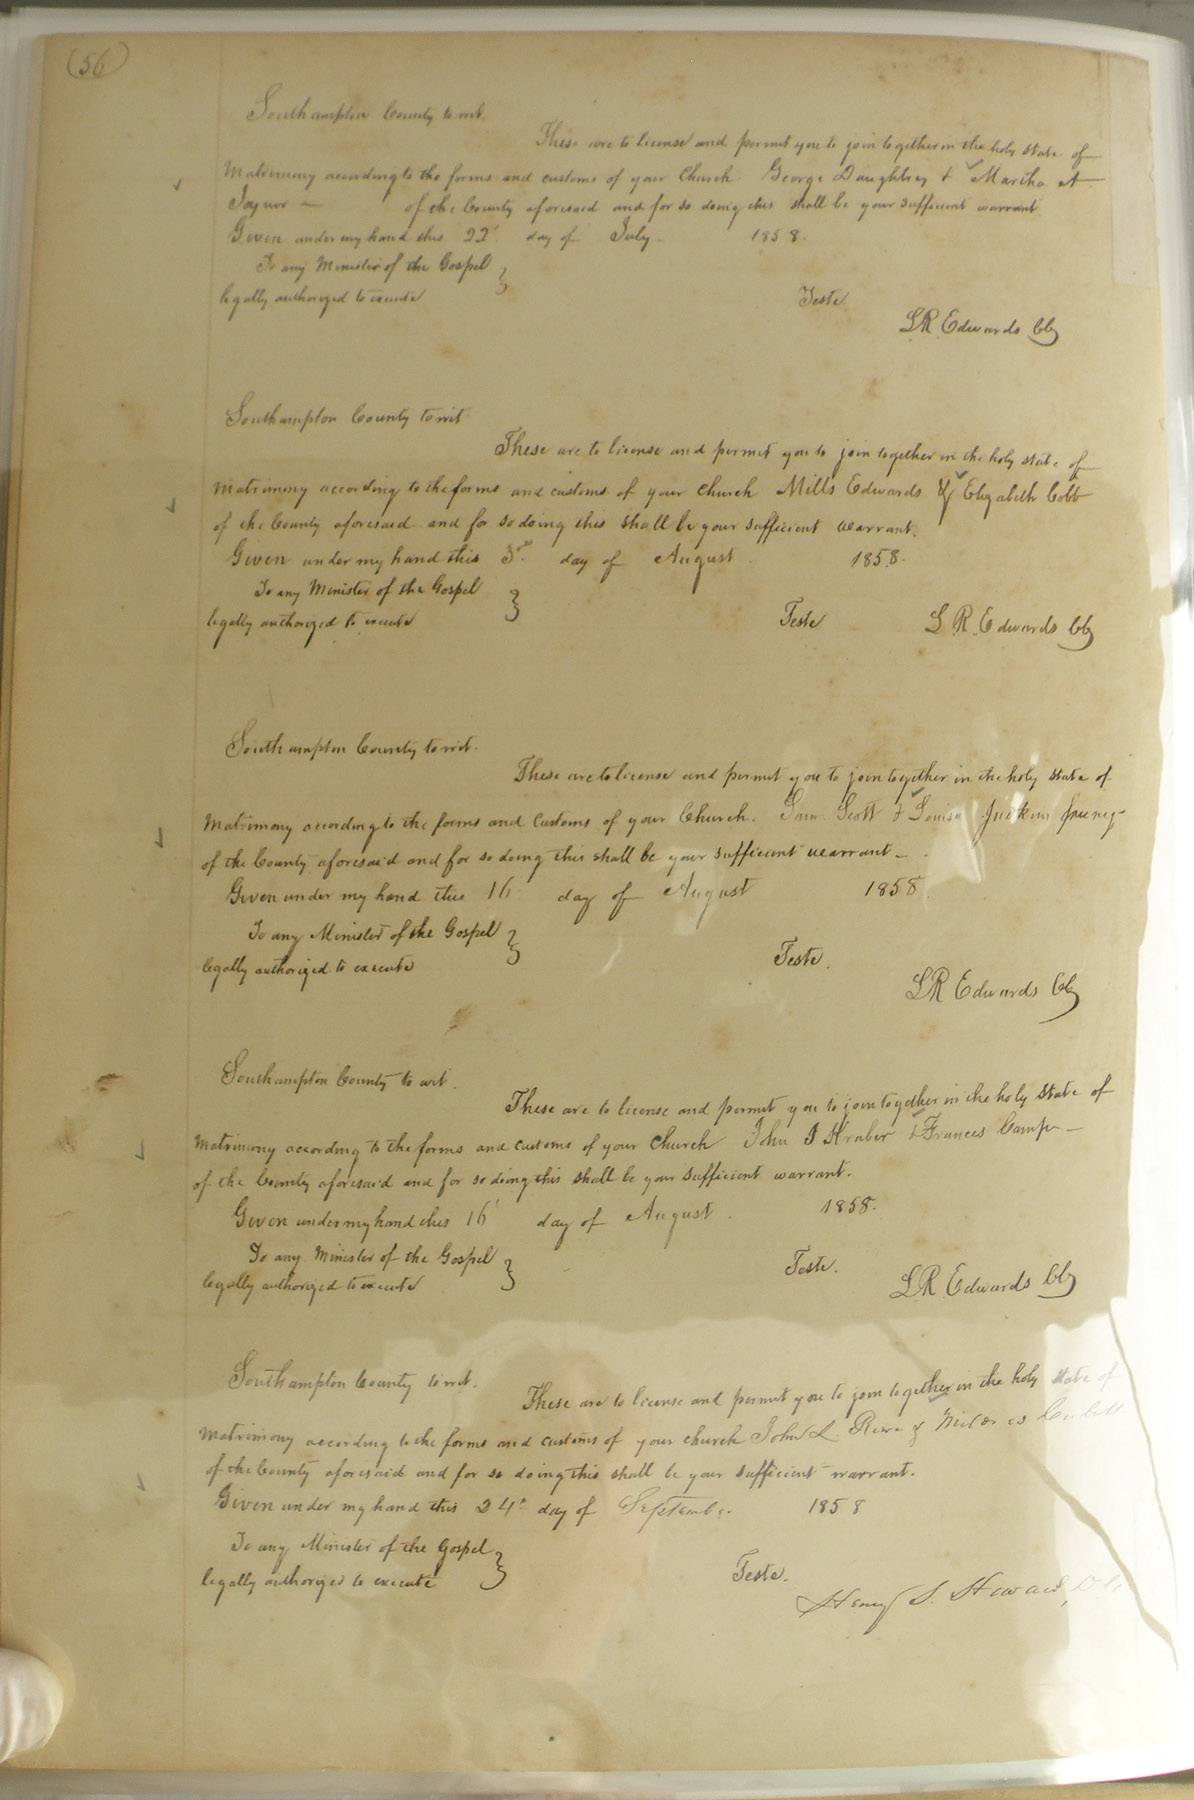 (56)
Southampton County to wit
These are to license and permit you to join together in the holy state of
Matrimony according to the forms and customs of your Church George Daughtrey & Martha A
Joyner – of the County aforesaid and for so doing this shall be your sufficient warrant
Given under my hand this 22 day of July 1858.
To any Minister of the Gospel }
legally authorized to execute
Teste
LR Edwards Clk
Southampton County to wit
These are to license and permit you to join together in the holy state of
Matrimony according to the forms and customs of your Church Mills Edwards & Elizabeth Cobb
of the County aforesaid and for so doing this shall be your sufficient warrant.
Given under my hand this 3rd day of August 1858.
To any Minister of the Gospel }
legally authorized to execute
Teste
L R Edwards Clk
Southampton County to wit.
These are to license and permit you to join together in the holy state of
Matrimony according to the forms and Customs of your Church. Sam Scott & Louisa Judkins
of the County aforesaid and for so doing this shall be your sufficient warrant –
Given under my hand this 16 day of August 1858
To any Minister of the Gospel }
legally authorized to execute
Teste.
LR Edwards Clk
Southampton County to wit.
These are to license and permit you to join together in the holy state of
Matrimony according to the forms and customs of your Church John J Kraber & Frances Camp –
of the County aforesaid and for so doing this shall be your sufficient warrant.
Given under my hand this 16 day of August 1858.
To any Minister of the Gospel }
legally authorized to execute
Teste.
LR Edwards Clk
Southampton County to wit.
These are to license and permit you to join together in the holy state of
Matrimony according to the forms and customs of your church John L &
of the County aforesaid and for so doing this shall be your sufficient warrant.
Given under my hand this 24th day of September 1858
To any Minister of the Gospel }
legally authorized to execute
Teste.
Henry S.